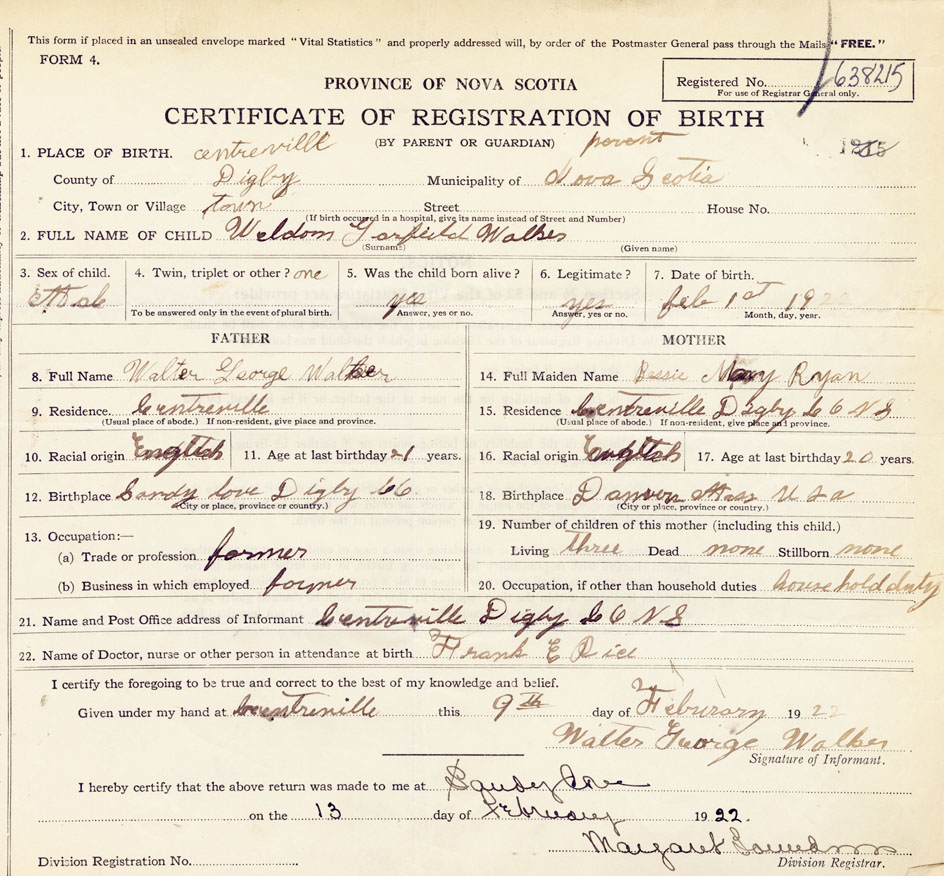 This form if placed in an unsealed envelope marked "Vital Statistics" and properly addressed will, by order of the Postmaster General pass through the Mails "FREE."
FORM 4.
PROVINCE OF NOVA SCOTIA
Registered No. 638215
For use of Registrar General only.
CERTIFICATE OF REGISTRATION OF BIRTH
(BY PARENT OR GUARDIAN) parent
1. PLACE OF BIRTH. centreville
County of Digby Municipality of Nova Scotia
City, Town or Village town Street House No.
(If birth occurred in a hospital, give its name instead of Street and Number)
2. FULL NAME OF CHILD Weldom Garfield Walker
(Surname) (Given name)
3. Sex of child. 4. Twin, triplet or other? one 5. Was the child born alive? 6. Legitimate? 7. Date of birth.
Male yes yes feb 1st 1922
To be answered only in the event of plural birth. Answer, yes or no. Answer, yes or no. Month, day, year.
FATHER MOTHER
8. Full Name Walter George Walker 14. Full Maiden Name Bessie May Ryan
9. Residence. Centreville 15. Residence Centreville Digby Co N S
(Usual place of abode.) If non-resident, give place and province. (Usual place of abode.) If non-resident, give place and province.
10. Racial origin English 11. Age at last birthday 21 years. 16. Racial origin English 17. Age at last birthday 20 years.
12. Birthplace Sandy Cove Digby Co. 18. Birthplace Danvers Mass U S a
(City or place, province or country.) (City or place, province or country.)
13. Occupation:— 19. Number of children of this mother (including this child.)
(a) Trade or profession farmer Living three Dead none Stillborn none
(b) Business in which employed farmer 20. Occupation, if other than household duties household duty
21. Name and Post Office address of Informant Centreville Digby Co N S
22. Name of Doctor, nurse or other person in attendance at birth Frank E Rice
I certify the foregoing to be true and correct to the best of my knowledge and belief.
Given under my hand at Centreville this 9th day of Feburary 1922
Walter George Walker
Signature of Informant.
I hereby certify that the above return was made to me at Sandy Cove
on the 13 day of February 1922.
Margaret Saunders
Division Registration No. Division Registrar.